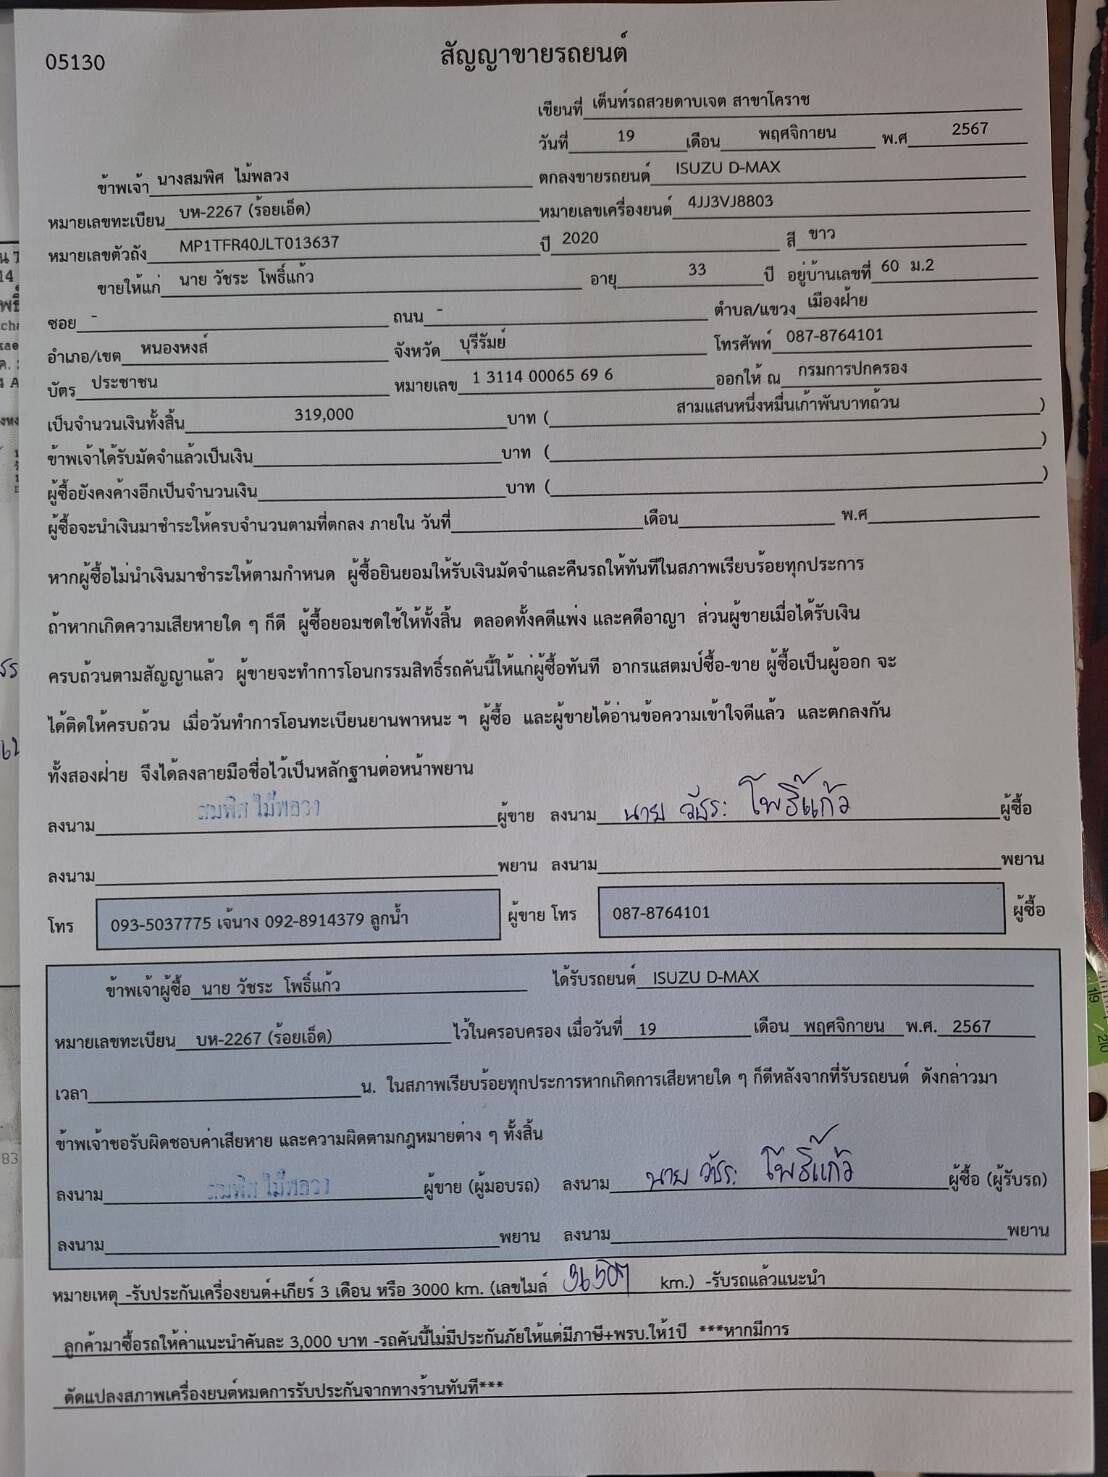 05130
สัญญาขายรถยนต์
เขียนที่ เต็นท์รถสวยดาบเจต สาขาโคราช
วันที่ 19 เดือน พฤศจิกายน พ.ศ 2567
ข้าพเจ้า นางสมพิศ ไม้พลวง ตกลงขายรถยนต์ ISUZU D-MAX
หมายเลขทะเบียน บห-2267 (ร้อยเอ็ด) หมายเลขเครื่องยนต์ 4JJ3VJ8803
หมายเลขตัวถัง MP1TFR40JLT013637 ปี 2020 สี ขาว
ขายให้แก่ นาย วัชระ โพธิ์แก้ว อายุ 33 ปี อยู่บ้านเลขที่ 60 ม.2
ซอย - ถนน - ตำบล/แขวง เมืองฝ้าย
อำเภอ/เขต หนองหงส์ จังหวัด บุรีรัมย์ โทรศัพท์ 087-8764101
บัตร ประชาชน หมายเลข 1 3114 00065 69 6 ออกให้ ณ กรมการปกครอง
เป็นจำนวนเงินทั้งสิ้น 319,000 บาท ( สามแสนหนึ่งหมื่นเก้าพันบาทถ้วน )
ข้าพเจ้าได้รับมัดจำแล้วเป็นเงิน บาท ( )
ผู้ซื้อยังคงค้างอีกเป็นจำนวนเงิน บาท ( )
ผู้ซื้อจะนำเงินมาชำระให้ครบจำนวนตามที่ตกลง ภายใน วันที่ เดือน พ.ศ
หากผู้ซื้อไม่นำเงินมาชำระให้ตามกำหนด ผู้ซื้อยินยอมให้รับเงินมัดจำและคืนรถให้ทันทีในสภาพเรียบร้อยทุกประการ
ถ้าหากเกิดความเสียหายใด ๆ ก็ดี ผู้ซื้อยอมชดใช้ให้ทั้งสิ้น ตลอดทั้งคดีแพ่ง และคดีอาญา ส่วนผู้ขายเมื่อได้รับเงิน
ครบถ้วนตามสัญญาแล้ว ผู้ขายจะทำการโอนกรรมสิทธิ์รถคันนี้ให้แก่ผู้ซื้อทันที อากรแสตมป์ซื้อ-ขาย ผู้ซื้อเป็นผู้ออก จะ
ได้ติดให้ครบถ้วน เมื่อวันทำการโอนทะเบียนยานพาหนะ ฯ ผู้ซื้อ และผู้ขายได้อ่านข้อความเข้าใจดีแล้ว และตกลงกัน
ทั้งสองฝ่าย จึงได้ลงลายมือชื่อไว้เป็นหลักฐานต่อหน้าพยาน
ลงนาม สมพิศ ไม้พลวง ผู้ขาย ลงนาม นาย วัชระ โพธิ์แก้ว ผู้ซื้อ
ลงนาม พยาน ลงนาม พยาน
โทร 093-5037775 เจ้นาง 092-8914379 ลูกน้ำ ผู้ขาย โทร 087-8764101 ผู้ซื้อ
ข้าพเจ้าผู้ซื้อ นาย วัชระ โพธิ์แก้ว ได้รับรถยนต์ ISUZU D-MAX
หมายเลขทะเบียน บห-2267 (ร้อยเอ็ด) ไว้ในครอบครอง เมื่อวันที่ 19 เดือน พฤศจิกายน พ.ศ. 2567
เวลา น. ในสภาพเรียบร้อยทุกประการหากเกิดการเสียหายใด ๆ ก็ดีหลังจากที่รับรถยนต์ ดังกล่าวมา
ข้าพเจ้าขอรับผิดชอบค่าเสียหาย และความผิดตามกฎหมายต่าง ๆ ทั้งสิ้น
ลงนาม สมพิศ ไม้พลวง ผู้ขาย (ผู้มอบรถ) ลงนาม นาย วัชระ โพธิ์แก้ว ผู้ซื้อ (ผู้รับรถ)
ลงนาม พยาน ลงนาม พยาน
หมายเหตุ -รับประกันเครื่องยนต์+เกียร์ 3 เดือน หรือ 3000 km. (เลขไมล์ km.) -รับรถแล้วแนะนำ
ลูกค้ามาซื้อรถให้ค่าแนะนำคันละ 3,000 บาท -รถคันนี้ไม่มีประกันภัยให้แต่มีภาษี+พรบ.ให้1ปี ***หากมีการ
ดัดแปลงสภาพเครื่องยนต์หมดการรับประกันจากทางร้านทันที***